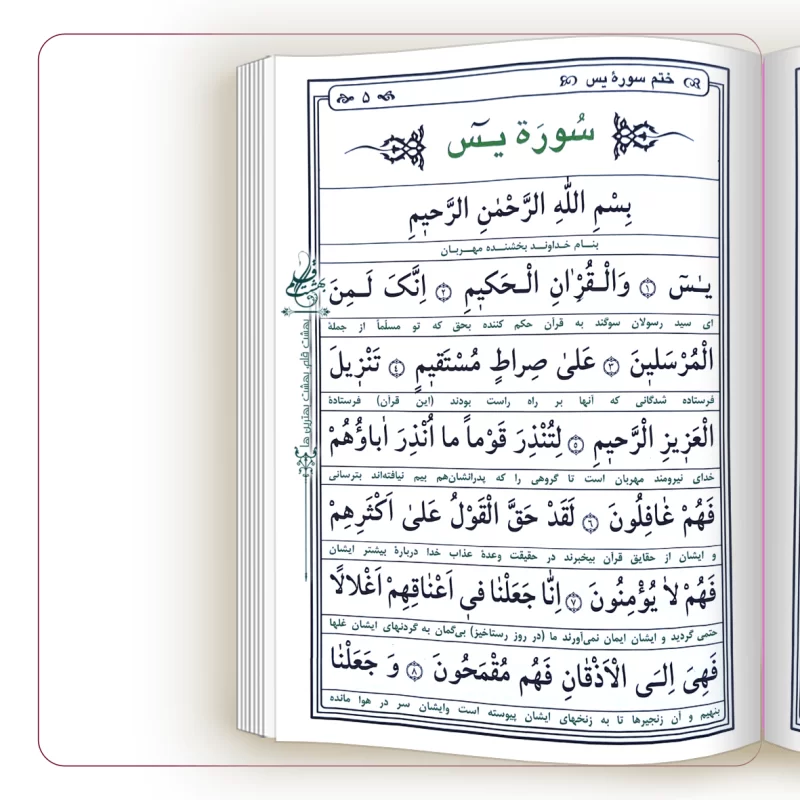 ختم سورهٔ یس
۵
سُورَة یـٓس
بِسْمِ اللّٰهِ الرَّحْمٰنِ الرَّحيٖمِ
بنـام خداونـد بخشنده مهـربان
يـٰسٓ ﴿۱﴾ وَالْـقُرْاٰنِ الْـحَكيٖمِ ﴿۲﴾ اِنَّکَ لَـمِنَ
ای سید رسولان سوگند به قرآن حکم کننده بحق که تو مسلّماً از جملهٔ
الْمُرْسَليٖنَ ﴿۳﴾ عَلیٰ صِراطٍ مُسْتَقيٖمٍ ﴿۴﴾ تَنْزيٖلَ
فرستاده شدگانی که آنها بر راه راست بودند (این قرآن) فرستادهٔ
الْعَزيٖزِ الْرَّحيٖمِ ﴿۵﴾ لِتُنْذِرَ قَوْماً ما اُنْذِرَ اٰباؤُهُمْ
خدای نیرومند مهربان است تا گروهی را که پدرانشان‌هم بیم نیافته‌اند بترسانی
فَهُمْ غٰافِلُونَ ﴿۶﴾ لَقَدْ حَقَّ الْقَوْلُ عَلیٰ اَكْثَرِهِمْ
و ایشان از حقایق قرآن بیخبرند در حقیقت وعدهٔ عذاب خدا دربارهٔ بیشتر ایشان
فَهُمْ لاٰ يُؤْمِنُونَ ﴿۷﴾ اِنّٰا جَعَلْنٰا فيٖ اَعْنٰاقِهِمْ اَغْلالًا
حتمی گردید و ایشان ایمان نمی‌آورند ما (در روز رستاخیز) بی‌گمان به گردنهای ایشان غلها
فَهِیَ اِلـَی الْاَذْقٰانِ فَهُم مُقْمَحُونَ ﴿۸﴾ وَ جَعَلْنٰا
بنهیم و آن زنجیرها تا به زنخهای ایشان پیوسته است وایشان سر در هوا مانده
بهشت قلم
بهشت قلم بهشت بهترین ها